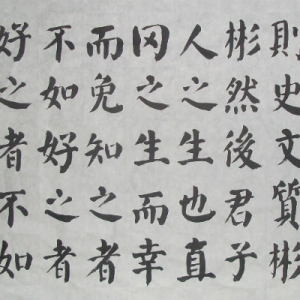 則史文質彬
彬然後君子
人之生也直
罔之生而幸
而免知之者
不如好之者
好之者不如